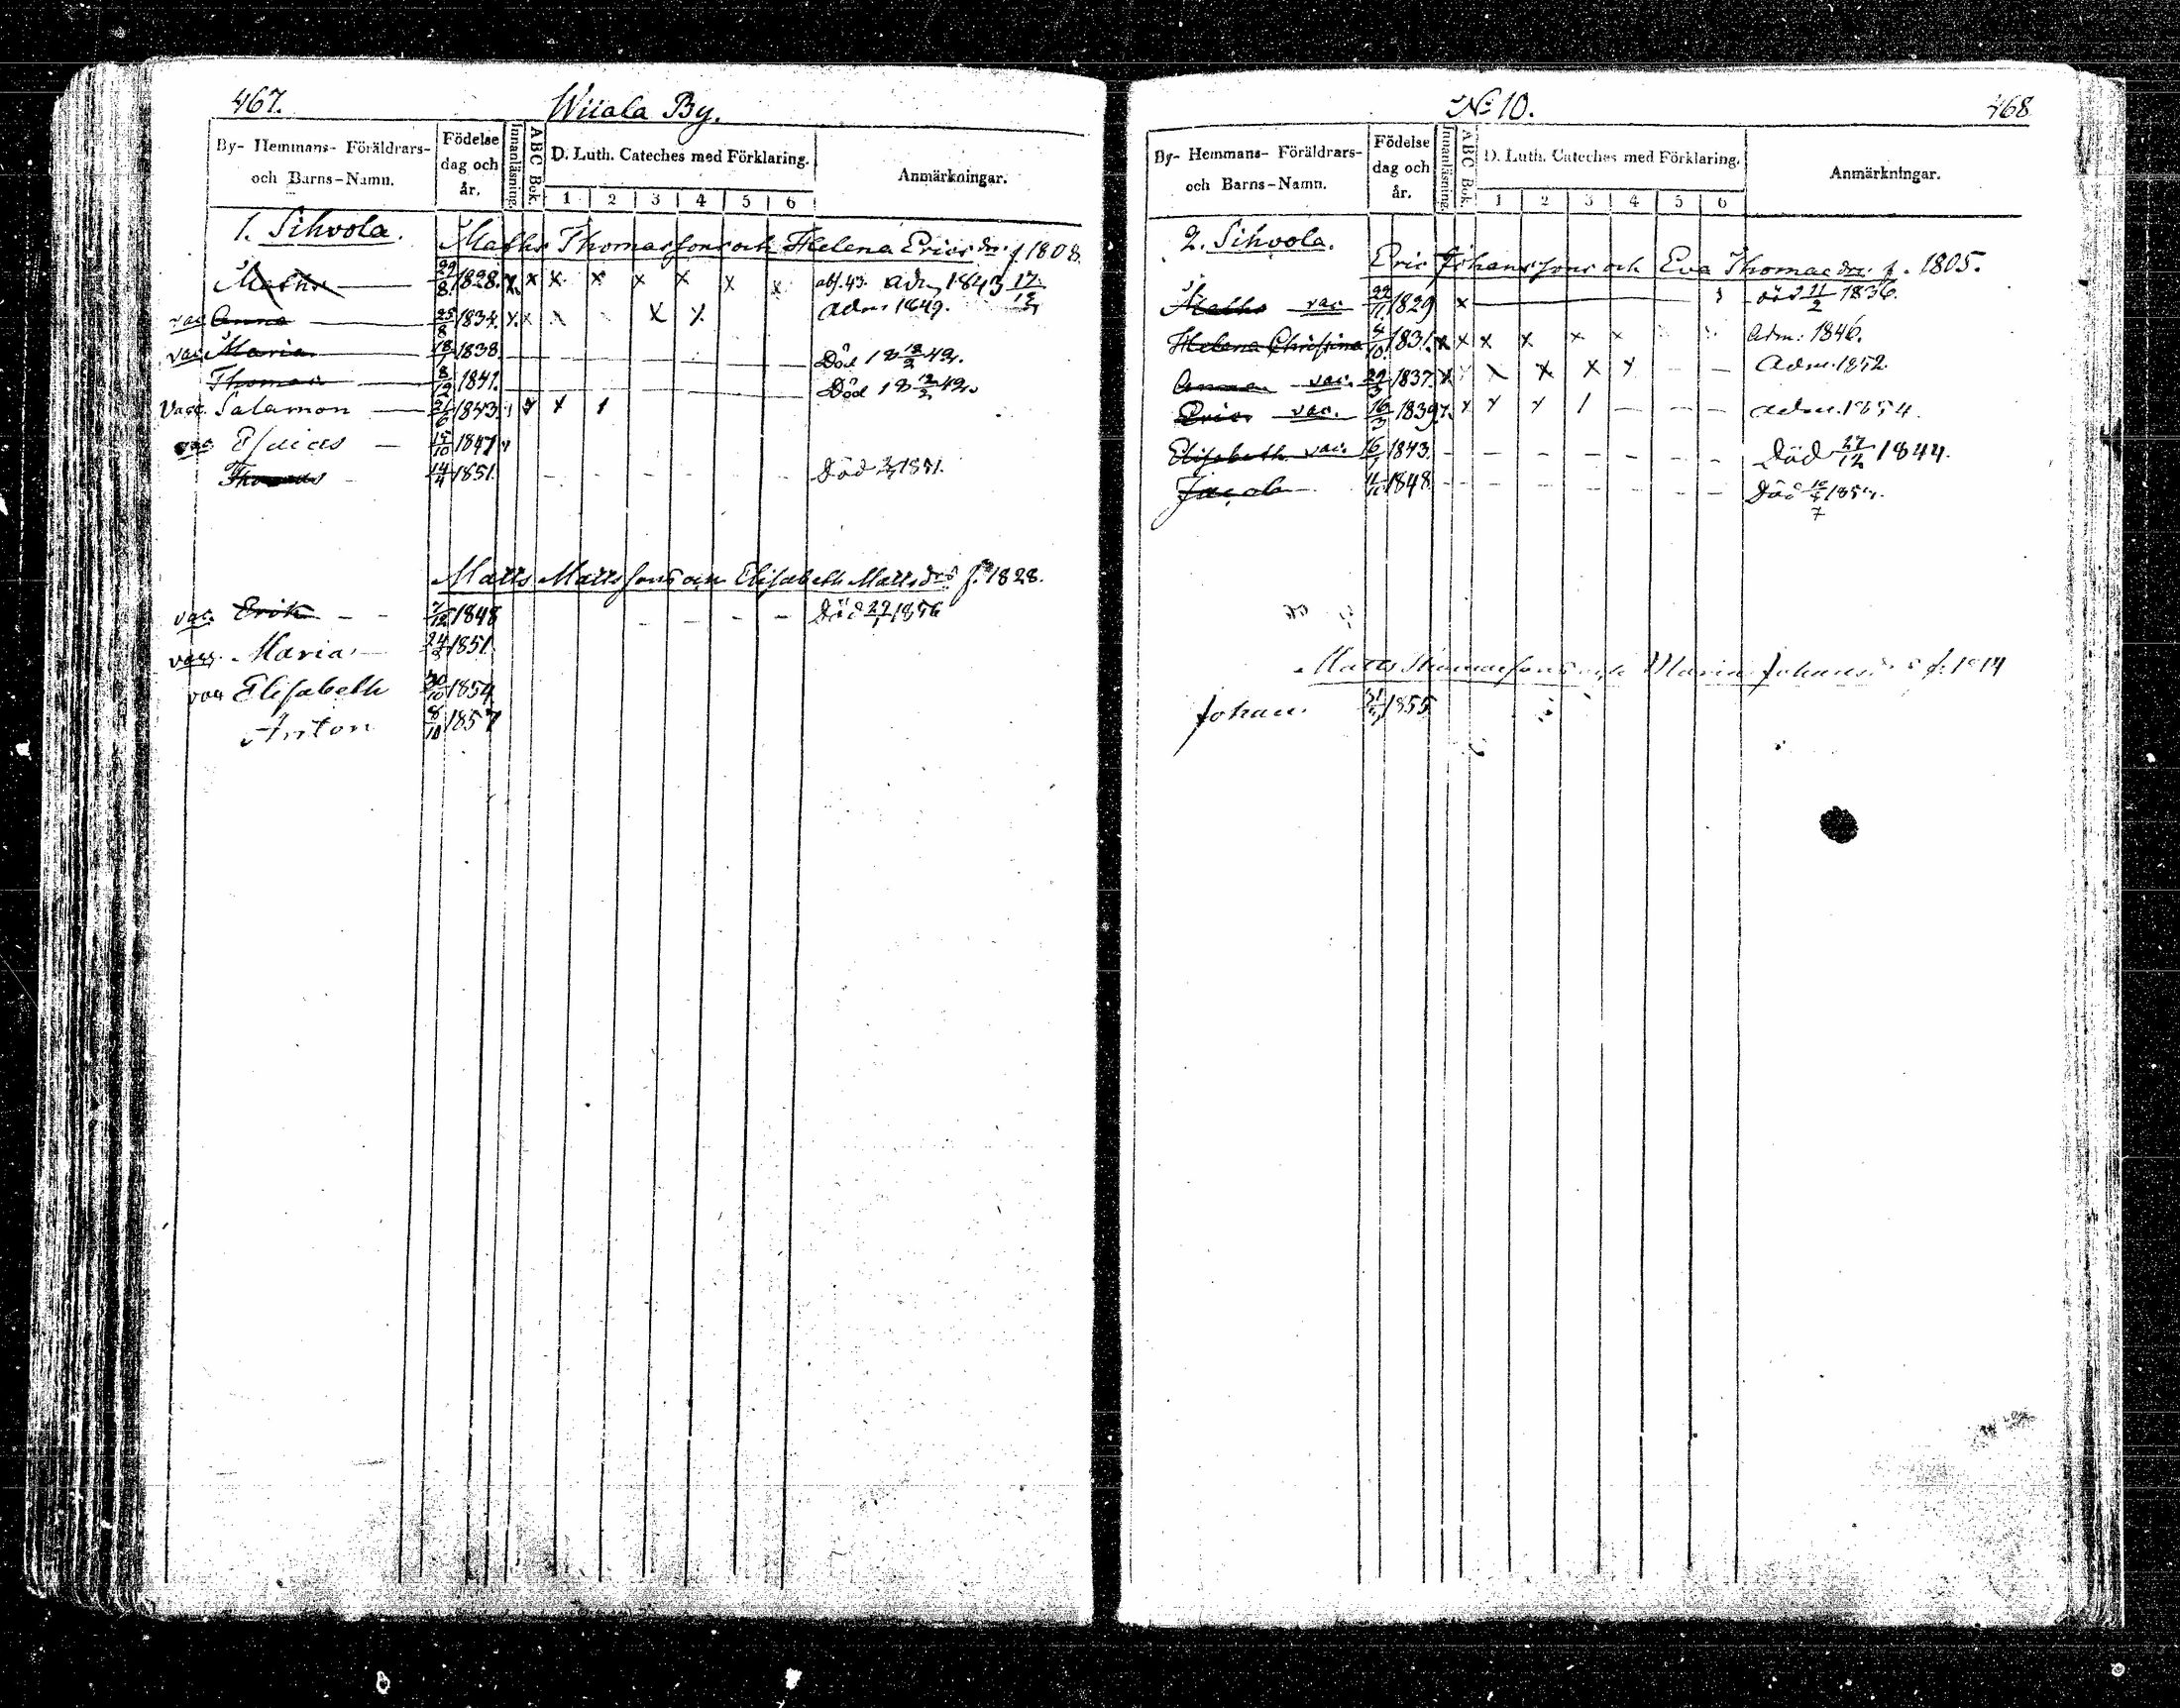 467. Wiiala By.
By- Hemmans- Föräldrars- och Barns-Namn. Födelse dag och år. Innanläsning. ABC Bok. D. Luth. Cateches med Förklaring. Anmärkningar.
1 2 3 4 5 6
1. Sihvola.
Maths Thomassons och Helena Ericsdr. f. 1808.
Maths 29/8 1828. x x x x x x x x abs. 43. adm 1843
vac Anna 25/8 1834. x x x x Adm 1849.
vac Maria 18/7 1838 Död 18 12/2 42.
Thomas 8/12 1841. Död 18 12/2 42.
Vacc. Salamon 21/6 1843
vac Esaias 15/10 1847
Thomas 14/4 1851. Död 1851.
Matts Mattssons och Elisabeth Mattsdrs f. 1828.
vac. Erik 7/12 1848 Död 1856
vacc. Maria 1851.
vac Elisabeth 30/10 1854
Anton 8/10 1857
No 10. 468
By- Hemmans- Föräldrars- och Barns-Namn. Födelse dag och år. Innanläsning. ABC Bok. D. Luth. Cateches med Förklaring. Anmärkningar.
1 2 3 4 5 6
2. Sihvola.
Eric Johanssons och Eva Thomasdr. f. 1805.
Maths vac 22/11 1829 x död 11/2 1836.
Helena Christina 4/10 1831. x x x x x x Adm: 1846.
Anna vac. 29/3 1837. x x x x Adm. 1852.
Eric vac. 16/3 1839 adm. 1854.
Elisabeth vac. 1843. Död 27/12 1844.
Jacob 1848. Död
Matts Thomassons och Maria Johans f. 1814
Johan 1855